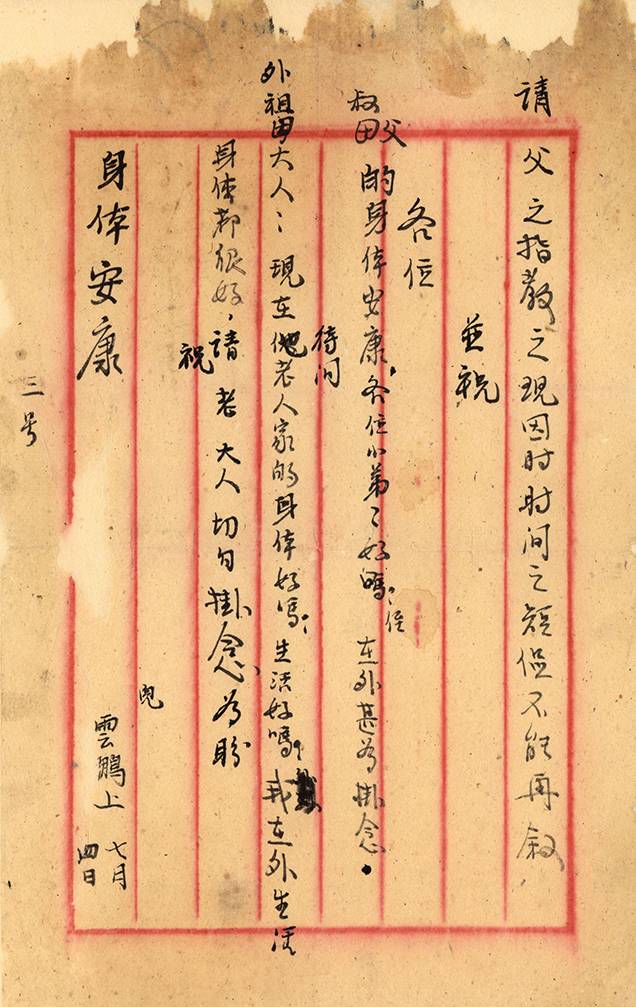 請父之指教之現因时时间之短促不能再叙
並祝
各位
叔父母的身体安康，各位小弟弟好嗎？侄在外甚為掛念。
待问
外祖母大人：現在他老人家的身体好嗎？生活好嗎？我在外生活
身体都很好，請老大人切勿掛念為盼
祝
身体安康
兒
雲鵬上
七月
四日
三号